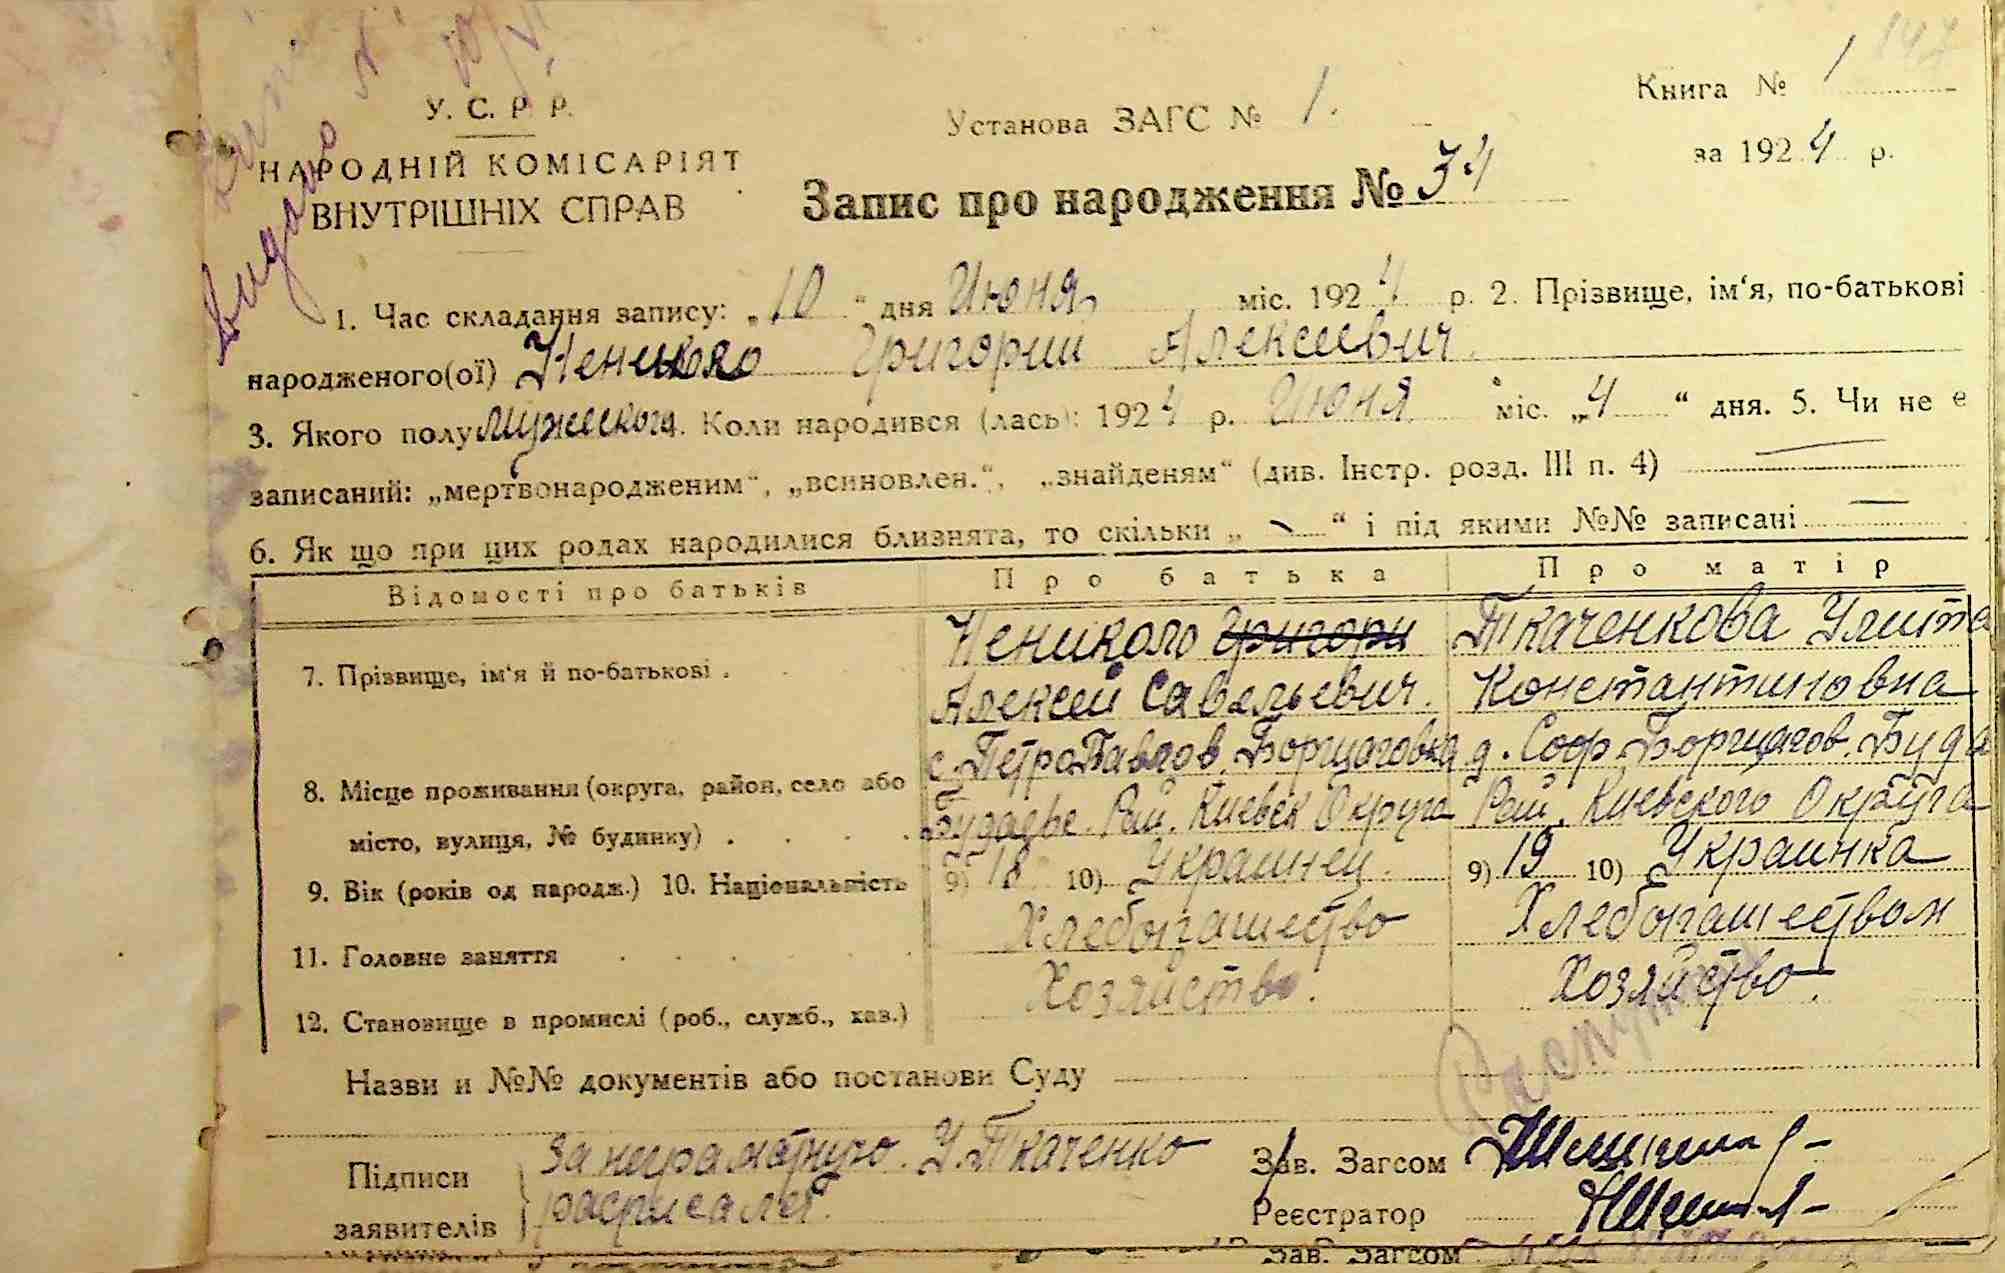 147
У. С. Р. Р.
НАРОДНІЙ КОМІСАРІЯТ
ВНУТРІШНІХ СПРАВ
Видано
Установа ЗАГС № 1.
Книга № 1
за 1924 р.
Запис про народження № 34
1. Час складання запису: „10“ дня Июня міс. 1924 р. 2. Прізвище, ім‘я, по-батькові
народженого(ої) Григорий Алексеевич
3. Якого полу мужеского. Коли народився (лась): 1924 р. Июня міс. „4“ дня. 5. Чи не є
записаний: „мертвонародженим“, „всиновлен.“, „знайденям“ (див. Інстр. розд. III п. 4) —
6. Як що при цих родах народилися близнята, то скільки „—“ і під якими №№ записані —
Відомості про батьків Про батька Про матір
7. Прізвище, ім‘я й по-батькові . Григори Ткаченкова Улита
Алексей Савельевич. Константиновна
8. Місце проживання (округа, район, село або місто, вулиця, № будинку) . с. ПетроПавлов. Борщаговка д. Соф. Борщагов. Буда
Рай. Киевск Округа Рай. Киевского Округа
9. Вік (років од народж.) 10. Національність 9) 18 10) Украинец. 9) 19 10) Украинка
11. Головне заняття Хлебопашество Хлебопашеством
12. Становище в промислі (роб., служб., хаз.) Хозяйство. Хозяйство.
Назви и №№ документів або постанови Суду
Підписи заявителів За неграматную У. Ткаченко
расписался
Зав. Загсом
Реєстратор
Зав. Загсом